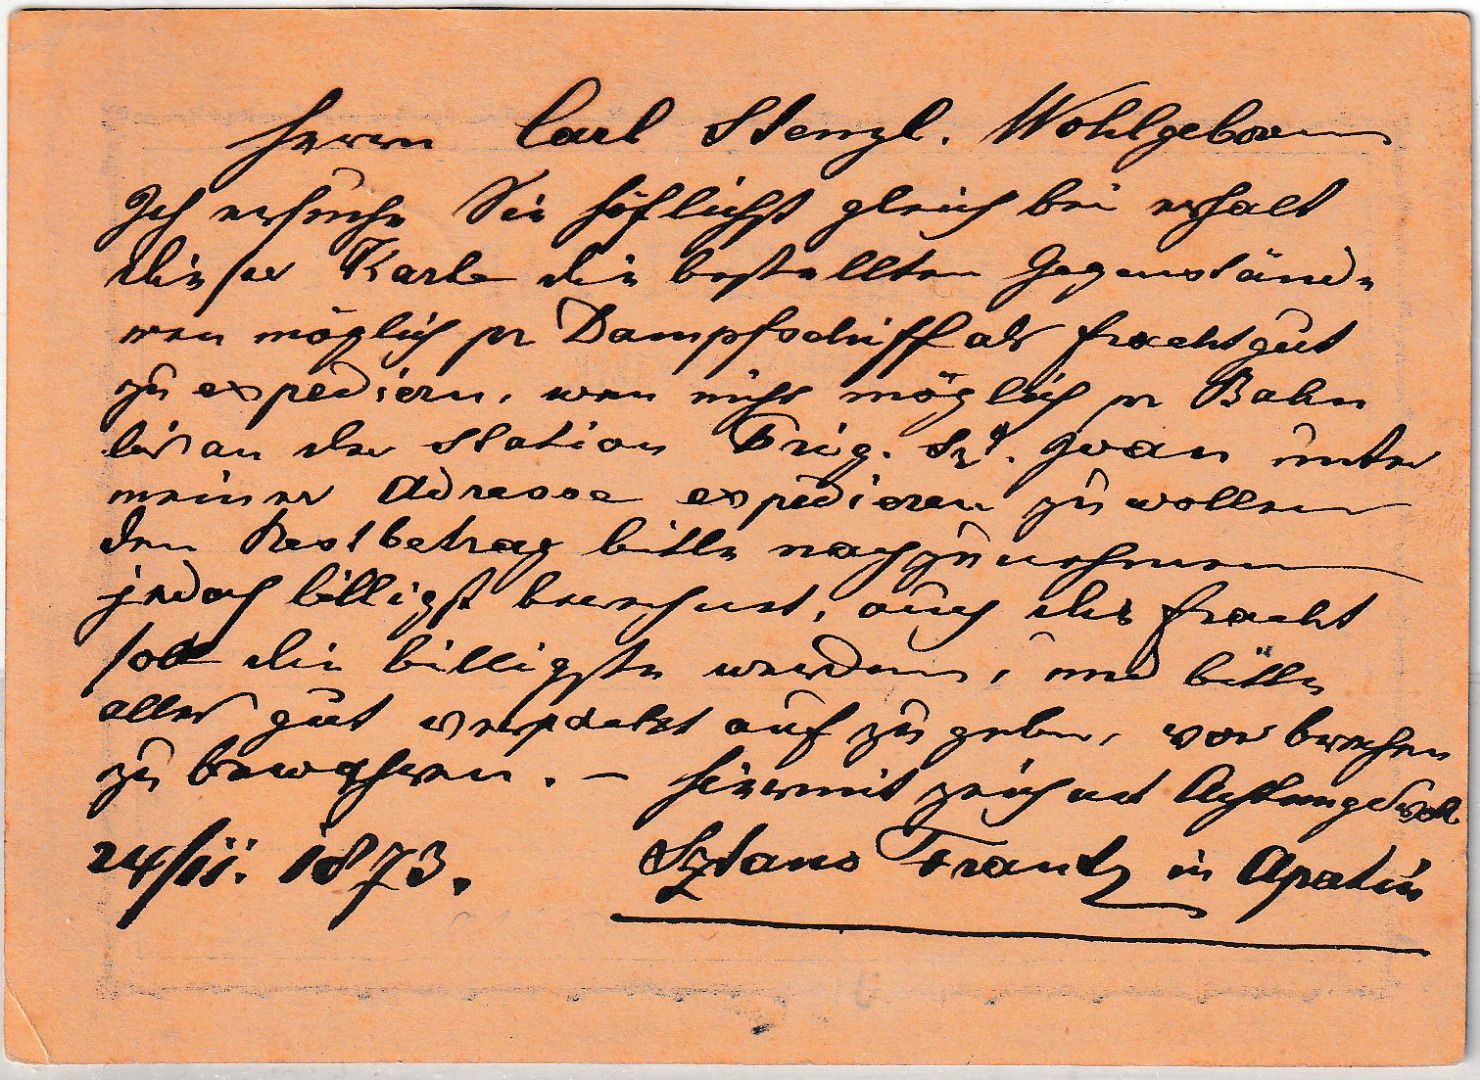 Herrn Carl Stenzl. Wohlgeboren
Ich ersuche Sie höflichst gleich bei erhalt
dieser Karte die bestellten Gegenstände
wen möglich pr Dampfschiff als Frachtgut
zu expediern, wen nicht möglich pr Bahn
bis an der Station Prig. Szt. Ivan unter
meiner Adresse expedieren zu wollen
den Restbetrag bitte nachzunehmen
jedoch billigst berechnet, auch die Fracht
soll die billigste werden, und bitte
alles gut verpackt auf zu geben, vor brechen
zu bewahren. – hiermit zeichnet Achtungsvoll
24/II. 1873. Sztano Frantz in Apatin